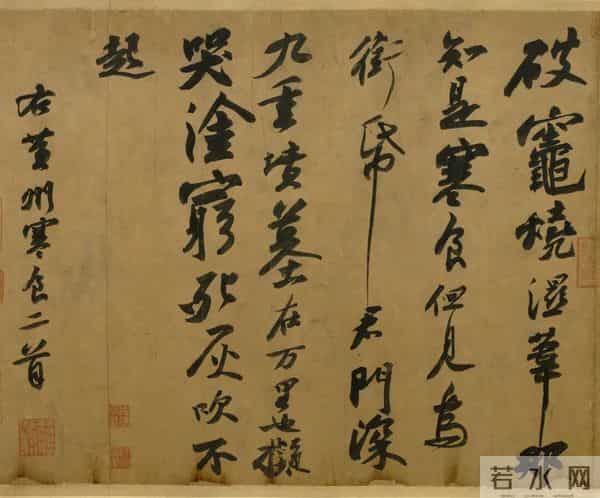 破竈燒濕葦那
知是寒食但見烏
銜帋君門深
九重墳墓在万里也擬
哭塗窮死灰吹不
起
右黃州寒食二首
若水网